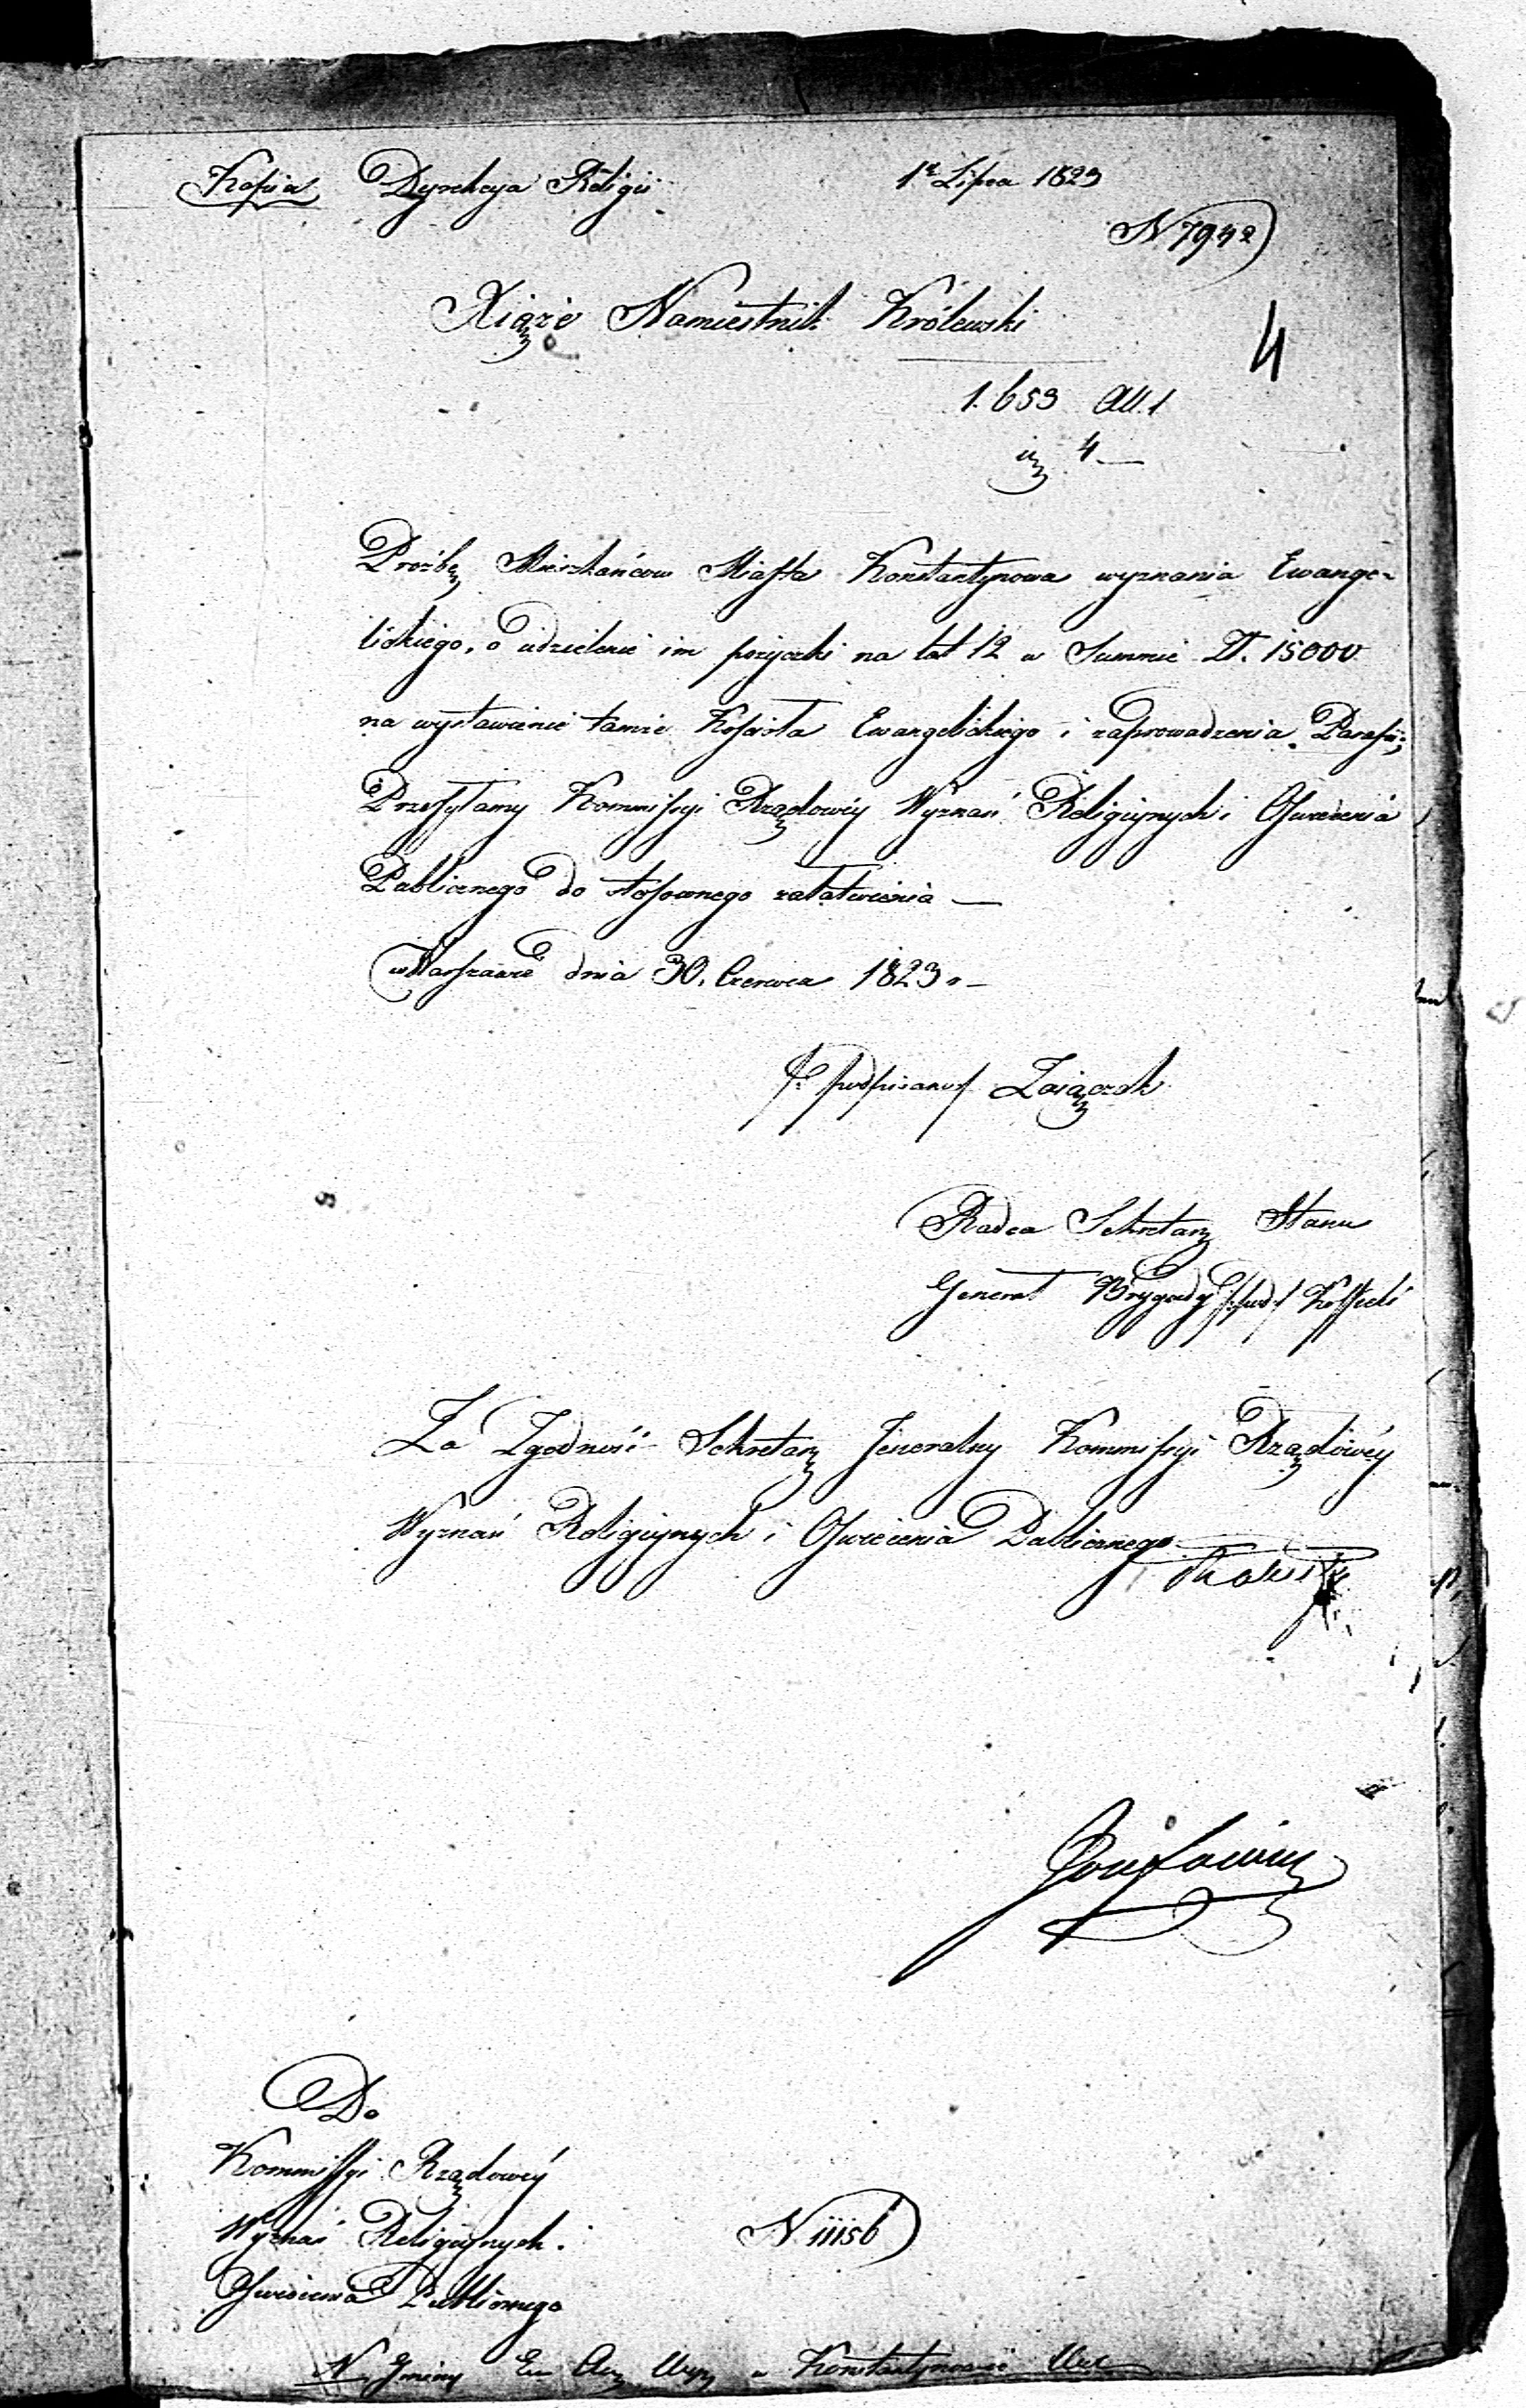 Kopia Dyrekcya Religii 1º Lipca 1823
N 7942
Xiąże Namiestnik Królewski
4
1.653 All.1
4 —
Proźbę Mieszkańcow Miasta Konstantynowa wyznania Ewange-
lickiego, o udzielenie im pożyczki na lat 12 w Summie Zł. 15000
na wystawienie tamże Kościoła Ewangelickiego i zaprowadzenia Parafii;
Przesyłamy Kommissyi Rządowéy Wyznań Religiynych i Oświecenia
Publicznego do stosownego załatwienia —
w Warszawie dnia 30. Czerwca 1823 r —
/: podpisano :/ Zaiączek
Radca Sekretarz Stanu
Generał Brygady /:pod:/ Kossecki
Za Zgodność Sekretarz Jeneralny Kommissyi Rządowéy
Wyznań Religiynych i Oświecenia Publicznego
Do
Kommissyi Rządowéy
Wyznań Religiynych i
Oświecenia Publicznego
N 11156
N Gminy Ew. Aug. w Konstantynowie